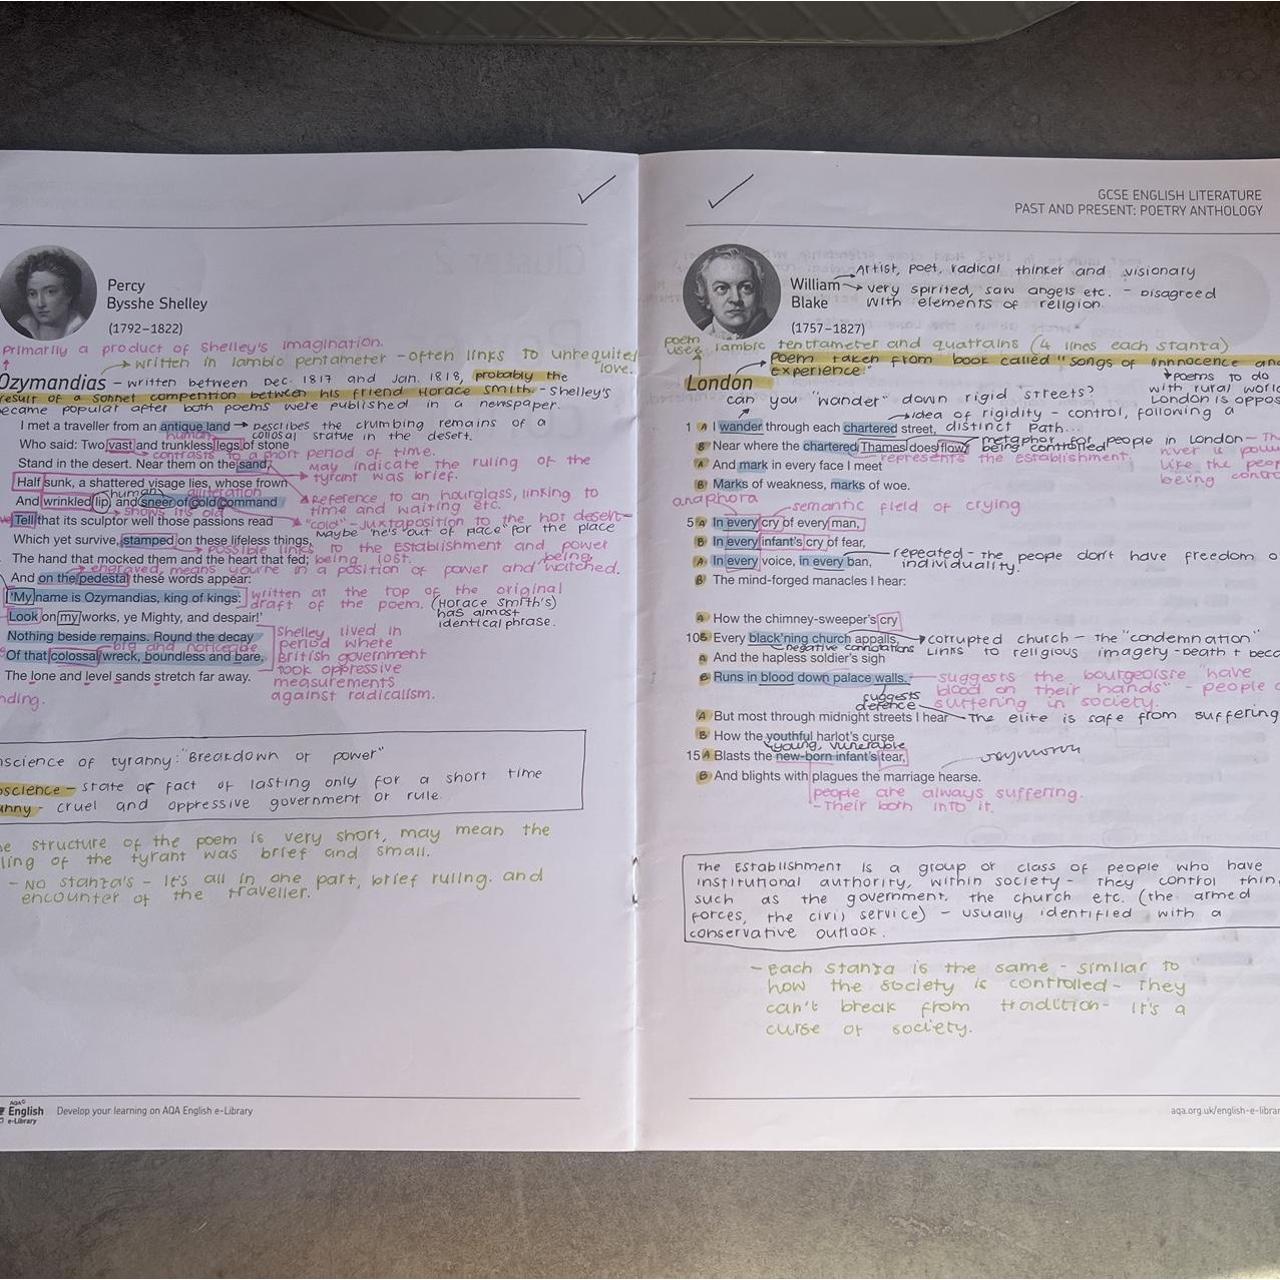 Percy
Bysshe Shelley
(1792–1822)
Primarily a product of Shelley's imagination.
written in Iambic pentameter - often links to unrequited love.
Ozymandias - written between Dec. 1817 and Jan. 1818, probably the
result of a sonnet compention between his friend Horace Smith - Shelley's
became popular after both poems were published in a newspaper.
I met a traveller from an antique land → describes the crumbing remains of a
colossal statue in the desert.
human
Who said: Two vast and trunkless legs of stone
contrasts to a short period of time.
Stand in the desert. Near them on the sand,
may indicate the ruling of the
tyrant was brief.
Half sunk, a shattered visage lies, whose frown
human alliteration
Reference to an hourglass, linking to
time and waiting etc.
And wrinkled lip, and sneer of cold command
shows it's old
"cold" - juxtaposition to the hot desert -
maybe "he's out of place" for the place
Tell that its sculptor well those passions read
Which yet survive, stamped on these lifeless things,
possible links to the Establishment and power
being lost.
The hand that mocked them and the heart that fed;
engraved, means you're in a position of power and being watched.
And on the pedestal these words appear:
'My name is Ozymandias, king of kings:
written at the top of the original
draft of the poem. (Horace Smith's)
has almost
identical phrase.
Look on my works, ye Mighty, and despair!'
Nothing beside remains. Round the decay
big and noticeable
Of that colossal wreck, boundless and bare,
The lone and level sands stretch far away.
Shelley lived in
period where
British government
took oppressive
measurements
against radicalism.
nding.
nscience of tyranny: "Breakdown of power"
oscience - state or fact of lasting only for a short time
anny - cruel and oppressive government or rule.
e structure of the poem is very short, may mean the
ling of the tyrant was brief and small.
- No stanza's - it's all in one part, brief ruling. and
encounter of the traveller.
AQA
English
e-Library
Develop your learning on AQA English e-Library
GCSE ENGLISH LITERATURE
PAST AND PRESENT: POETRY ANTHOLOGY
William
Blake
(1757–1827)
Artist, poet, radical thinker and visionary
very spirited, saw angels etc. - Disagreed
with elements of religion.
poem uses iambic tentrameter and quatrains (4 lines each stanta)
Poem taken from book called "Songs of innnocence and
experience."
London
poems to do
with rural world
London is oppos
can you "wander" down rigid streets?
idea of rigidity - control, following a
distinct path...
1 A I wander through each chartered street,
B Near where the chartered Thames does flow,
metaphor for people in London
being controlled
represents the establishment.
river is pollu
like the peop
being contro
A And mark in every face I meet
B Marks of weakness, marks of woe.
anaphora
semantic field of crying
5 A In every cry of every man,
B In every infant's cry of fear,
A In every voice, in every ban,
repeated - the people don't have freedom o
individuality.
B The mind-forged manacles I hear:
A How the chimney-sweeper's cry
10 B Every black'ning church appalls,
negative connotations
corrupted church - the "condemnation"
Links to religious imagery - death + beco
A And the hapless soldier's sigh
B Runs in blood down palace walls.
suggests the bourgeoisre "have
blood on their hands" - people a
suffering in society.
suggests
defence
A But most through midnight streets I hear
The elite is safe from suffering
B How the youthful harlot's curse
young, vunerable
15 A Blasts the new-born infant's tear,
oxymoron
B And blights with plagues the marriage hearse.
people are always suffering.
- Their both into it.
The Establishment is a group or class of people who have
institutional authority, within society - they control thin
such as the government. the church etc. (the armed
forces, the civil service) - usually identified with a
conservative outlook.
- Each stanza is the same - similar to
how the society is controlled - they
can't break from tradition - it's a
curse of society.
aqa.org.uk/english-e-librar